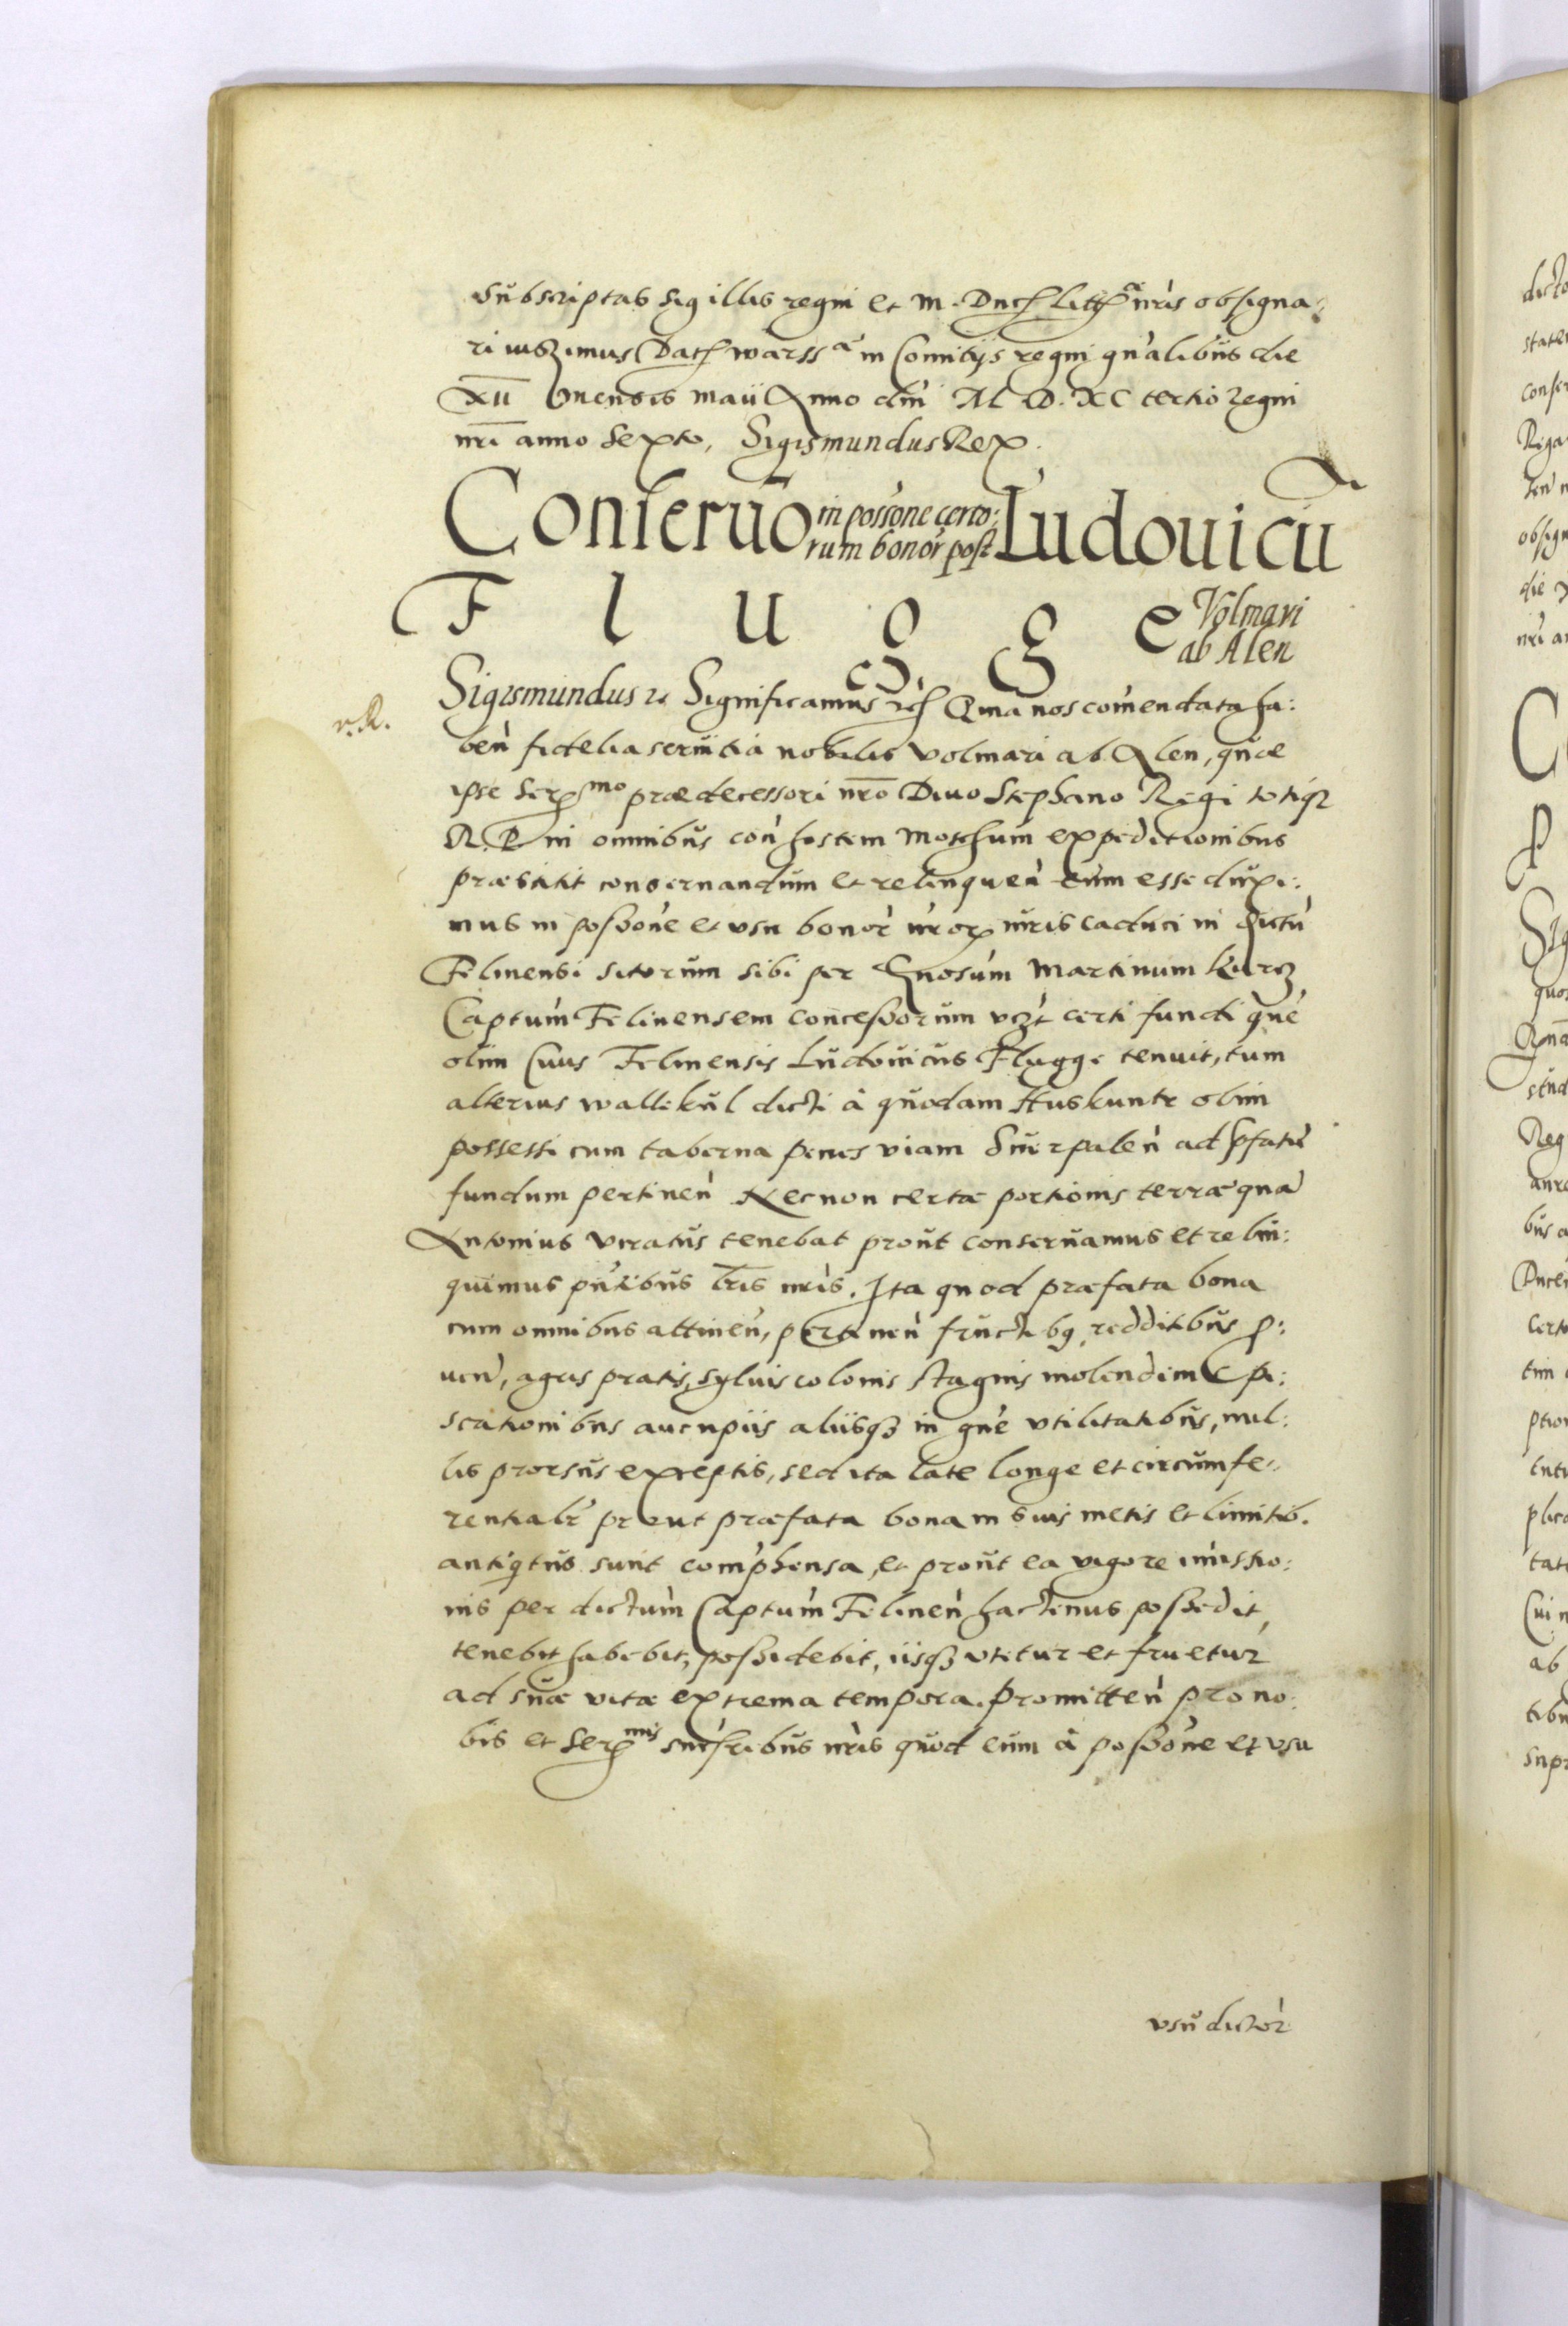 Subscriptas Sigillis regni et M. Duc. Litt. nris obsigna:
ri iussimus Dat Warss a in Comitijs regni gnalibus die
XII Mensis Maii Anno dni M. D. XC tertio Regni
nri anno Sexto, Sigismundus Rex.
Conseruo in possone certo: rum bonor post Ludouicu
Flugge Volmari ab Alen
Sigismundus Significamus Qma nos comendata ha:
ben fidelia seruitia nobilis Volmari ab Alen, quae
ipse Ser mo praedecessori nro Diuo Stephano Regi totiq
R. P. in omnibus con hostem Moschum expeditionibus
praestitit conseruandum et relinquen eum esse duxi:
mus in possone et usu bonor nror iuris caduci in dictu
Felinensi sitorum sibi per Gnosum Martinum Kurcz
Captum Felinensem concessorum vzt certi fundi que
olim Ciuis Felinensis Ludouicus Flugge tenuit, tum
alterius Wallekul dicti à quodam Huskunte olim
possessi cum taberna penes viam Suerpalen ad pfatu
fundum pertinen Necnon certae portionis terrae qua
Antonius Viratus tenebat prout conseruamus et relin:
quimus pntibus lris nris. Ita quod praefata bona
cum omnibus attinen, pertinen fructibq redditibus p:
uen, agris pratis, syluis colonis stagnis molendin pi:
scationibus aucupiis aliisq in gne vtilitatibus, nul:
lis prorsus exceptis, sed ita late longe et circumfe:
rentialr prout praefata bona in suis metis et limitib.
antiqtus sunt comphensa, et prout ea vigore imissio:
nis per dictum Captum Felinen hactenus possedit,
tenebit habebit, possidebit, iisq vtetur et fruetur
ad suae vitae extrema tempora. Promitten pro no:
bis et Ser mis sucsribus nris quod eum à possone et vsu
vsu dictor